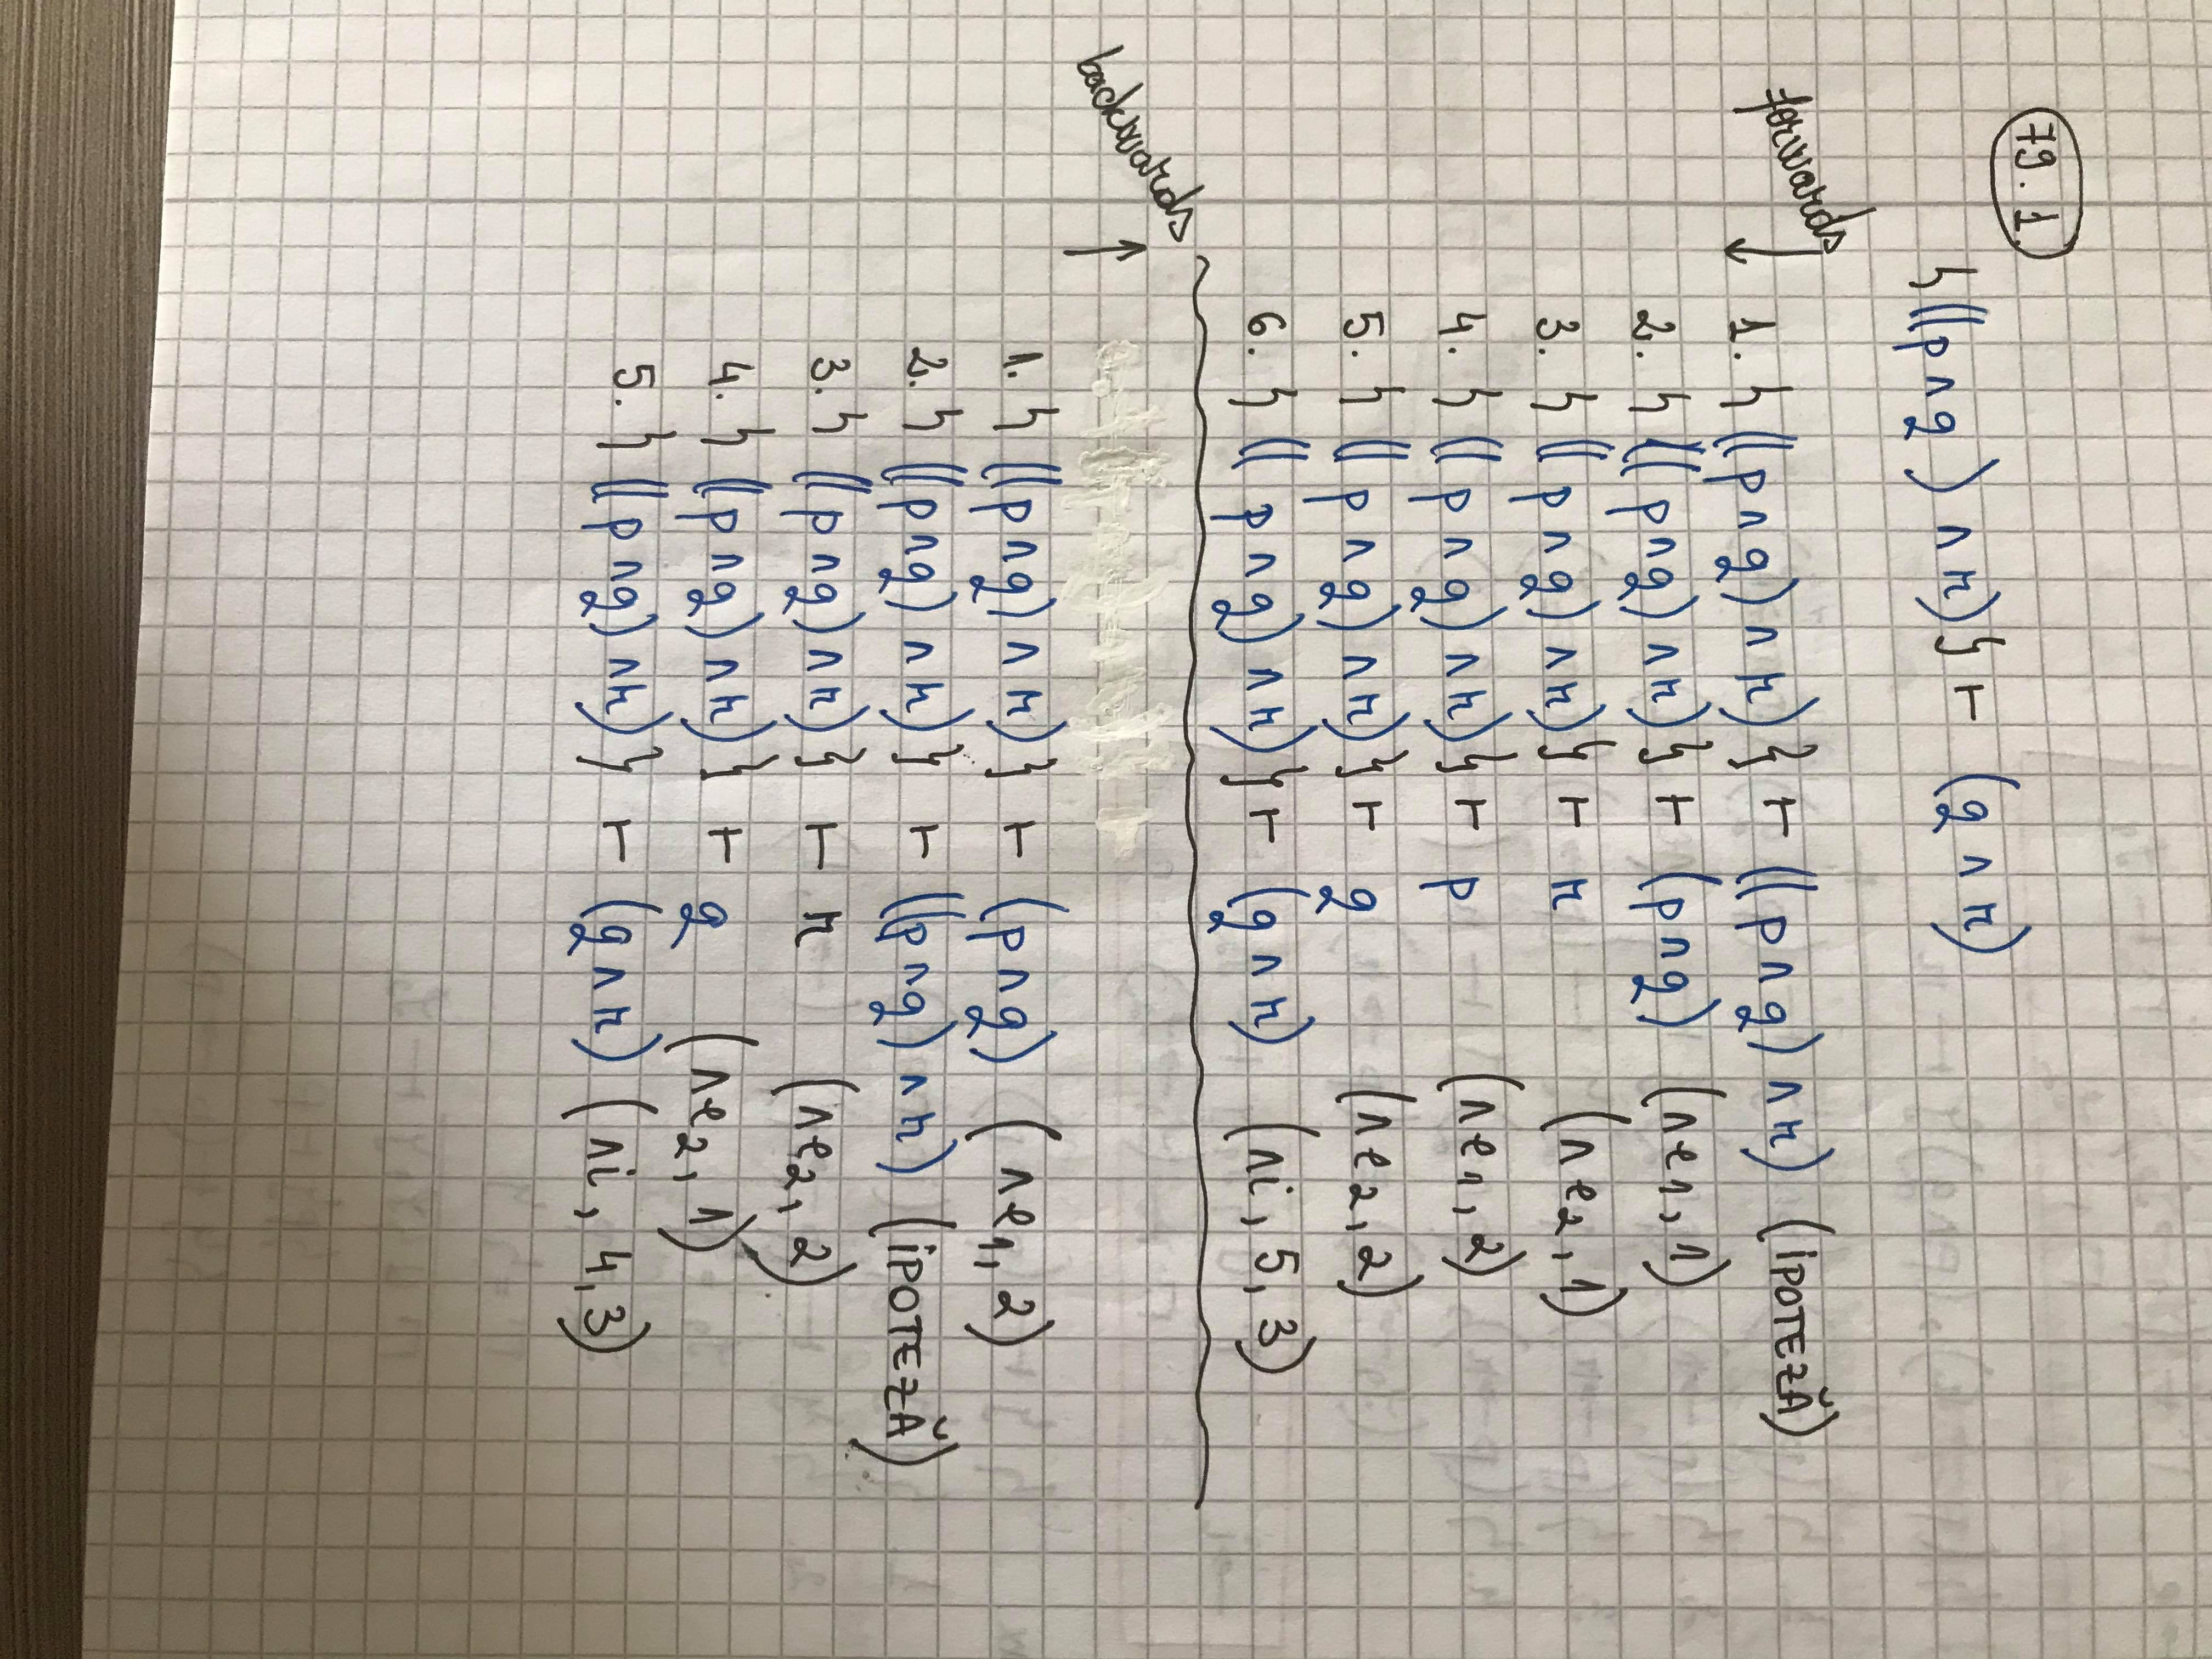 79. 1.
{((p∧q)∧r)} ⊢ (q∧r)
forwards
1. {((p∧q)∧r)} ⊢ ((p∧q)∧r) (IPOTEZĂ)
2. {((p∧q)∧r)} ⊢ (p∧q) (∧e₁, 1)
3. {((p∧q)∧r)} ⊢ r (∧e₂, 1)
4. {((p∧q)∧r)} ⊢ p (∧e₁, 2)
5. {((p∧q)∧r)} ⊢ q (∧e₂, 2)
6. {((p∧q)∧r)} ⊢ (q∧r) (∧i, 5, 3)
backwards
1. {((p∧q)∧r)} ⊢ (p∧q) (∧e₁, 2)
2. {((p∧q)∧r)} ⊢ ((p∧q)∧r) (IPOTEZĂ)
3. {((p∧q)∧r)} ⊢ r (∧e₂, 2)
4. {((p∧q)∧r)} ⊢ q (∧e₂, 1)
5. {((p∧q)∧r)} ⊢ (q∧r) (∧i, 4,3)